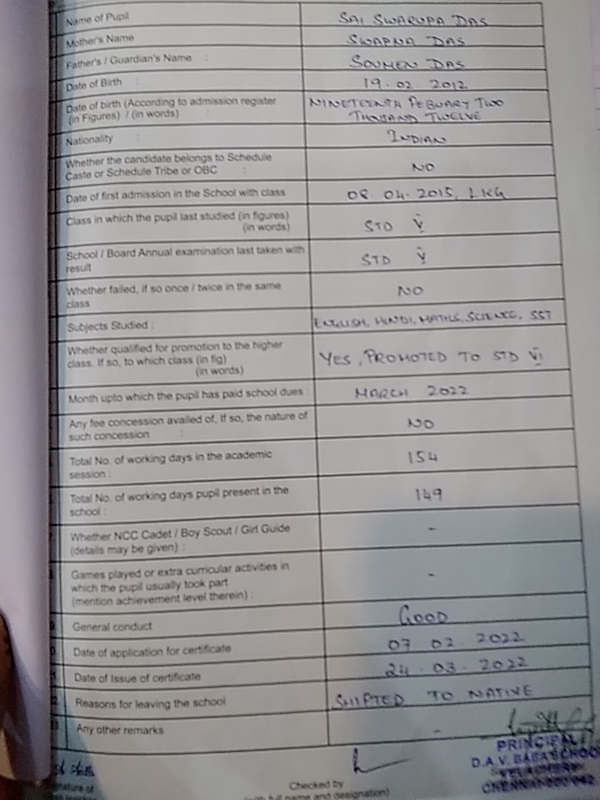 Name of Pupil SAI SWARUPA DAS
Mother's Name SWAPNA DAS
Father's / Guardian's Name : SOUMEN DAS
Date of Birth : 19.02.2012
Date of birth (According to admission register NINETEENTH FEBUARY TWO
(in Figures) / (in words) : THOUSAND TWELVE
Nationality : INDIAN
Whether the candidate belongs to Schedule
Caste or Schedule Tribe or OBC : NO
Date of first admission in the School with class 08.04.2015, LKG
Class in which the pupil last studied (in figures) STD V
(in words)
School / Board Annual examination last taken with STD V
result
Whether failed, if so once / twice in the same NO
class
Subjects Studied : ENGLISH, HINDI, MATHS, SCIENCE, SST
Whether qualified for promotion to the higher
class. If so, to which class (in fig) YES, PROMOTED TO STD VI
(in words)
Month upto which the pupil has paid school dues : MARCH 2022
Any fee concession availed of, If so, the nature of NO
such concession :
Total No. of working days in the academic 154
session :
Total No. of working days pupil present in the 149
school :
Whether NCC Cadet / Boy Scout / Girl Guide -
(details may be given) :
Games played or extra curricular activities in
which the pupil usually took part -
(mention achievement level therein) :
General conduct GOOD
Date of application for certificate 07.02.2022
Date of Issue of certificate 24.03.2022
Reasons for leaving the school SHIFTED TO NATIVE
Any other remarks -
PRINCIPAL
D.A.V. BABA SCHOOL
VELACHERY
CHENNAI-600 042
Checked by
(with full name and designation)